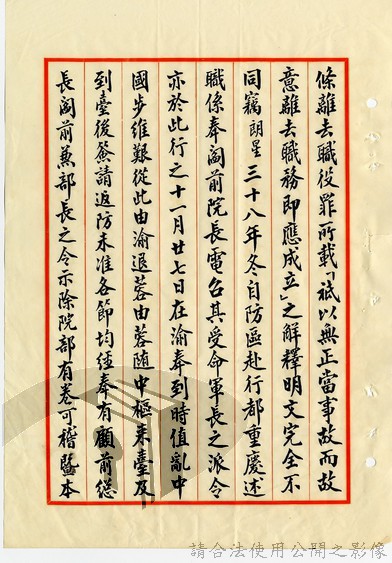 條離去職役罪所載「祇以無正當事故而故
意離去職務即應成立」之解釋明文完全不
同竊朗星三十八年冬自防區赴行都重慶述
職係奉閻前院長電召其受命軍長之派令
亦於此行之十一月廿七日在渝奉到時值亂中
國步維艱從此由渝退蓉由蓉隨中樞來臺及
到臺後簽請返防未准各節均經奉有顧前總
長閻前兼部長之令示除院部有卷可稽暨本
請合法使用公開之影像